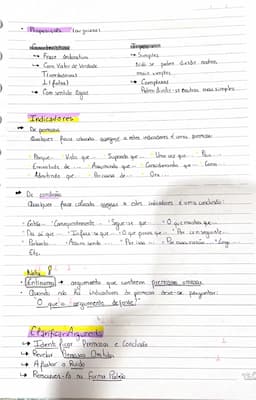 • Proposição
Características
→ Frase declarativa
→ Com Valor de Verdade
→ Com sentido
→ Simples
Não se podem dividir noutras
mais simples
→ Complexas
Podem dividir-se noutras mais simples
Indicadores
→ De premissa
Qualquer frase colocada a estes indicadores é uma premissa:
• Porque... • Visto que... • Supondo que... • Uma vez que • Pois...
• Admitindo que... • Por causa de... • Ora...
→ De conclusão
Qualquer frase colocada a estes indicadores é uma conclusão:
• Então... • Consequentemente... • Segue-se que... • O que mostra que...
• Daí que... • Infere-se que... • O que prova que... • Por conseguinte...
• Portanto... • Assim sendo... • Por isso... • Por essa razão... • Logo...
Etc.
Nota
Entinema → argumento que contém premissas omissas
Quando não há indicadores de premissa deve-se perguntar:
"O que o argumento defende?"
Clarificar Argumento
↳ Identificar Premissas e Conclusão
↳ Revelar Premissas Omitidas
↳ Afastar o Ruído
↳ Reescrevê-lo na Forma Padrão